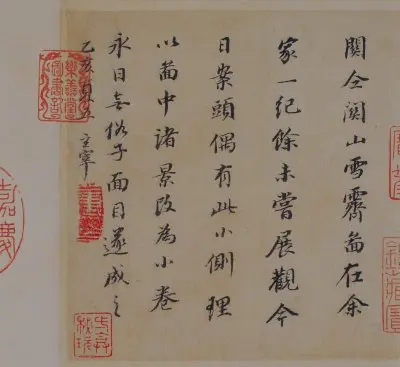 關仝關山雪霽啚在余
家一紀餘未嘗展觀今
日案頭偶有此小側理
以啚中諸景改為小卷
永日無俗子面目遂成之
乙亥夏五 玄宰
嘉慶